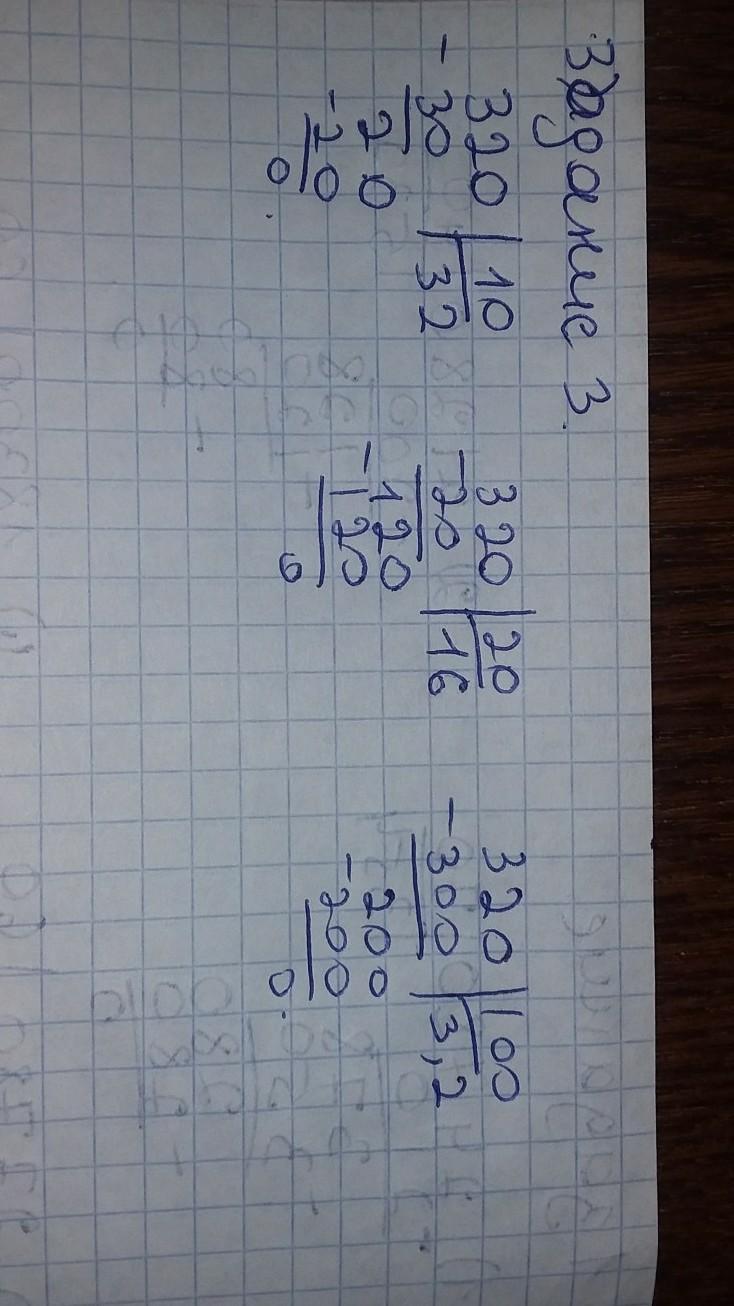 Задание 3.
320 | 10
- 30 | 32
20
- 20
0
320 | 20
- 20 | 16
120
- 120
0
320 | 100
- 300 | 3,2
200
- 200
0